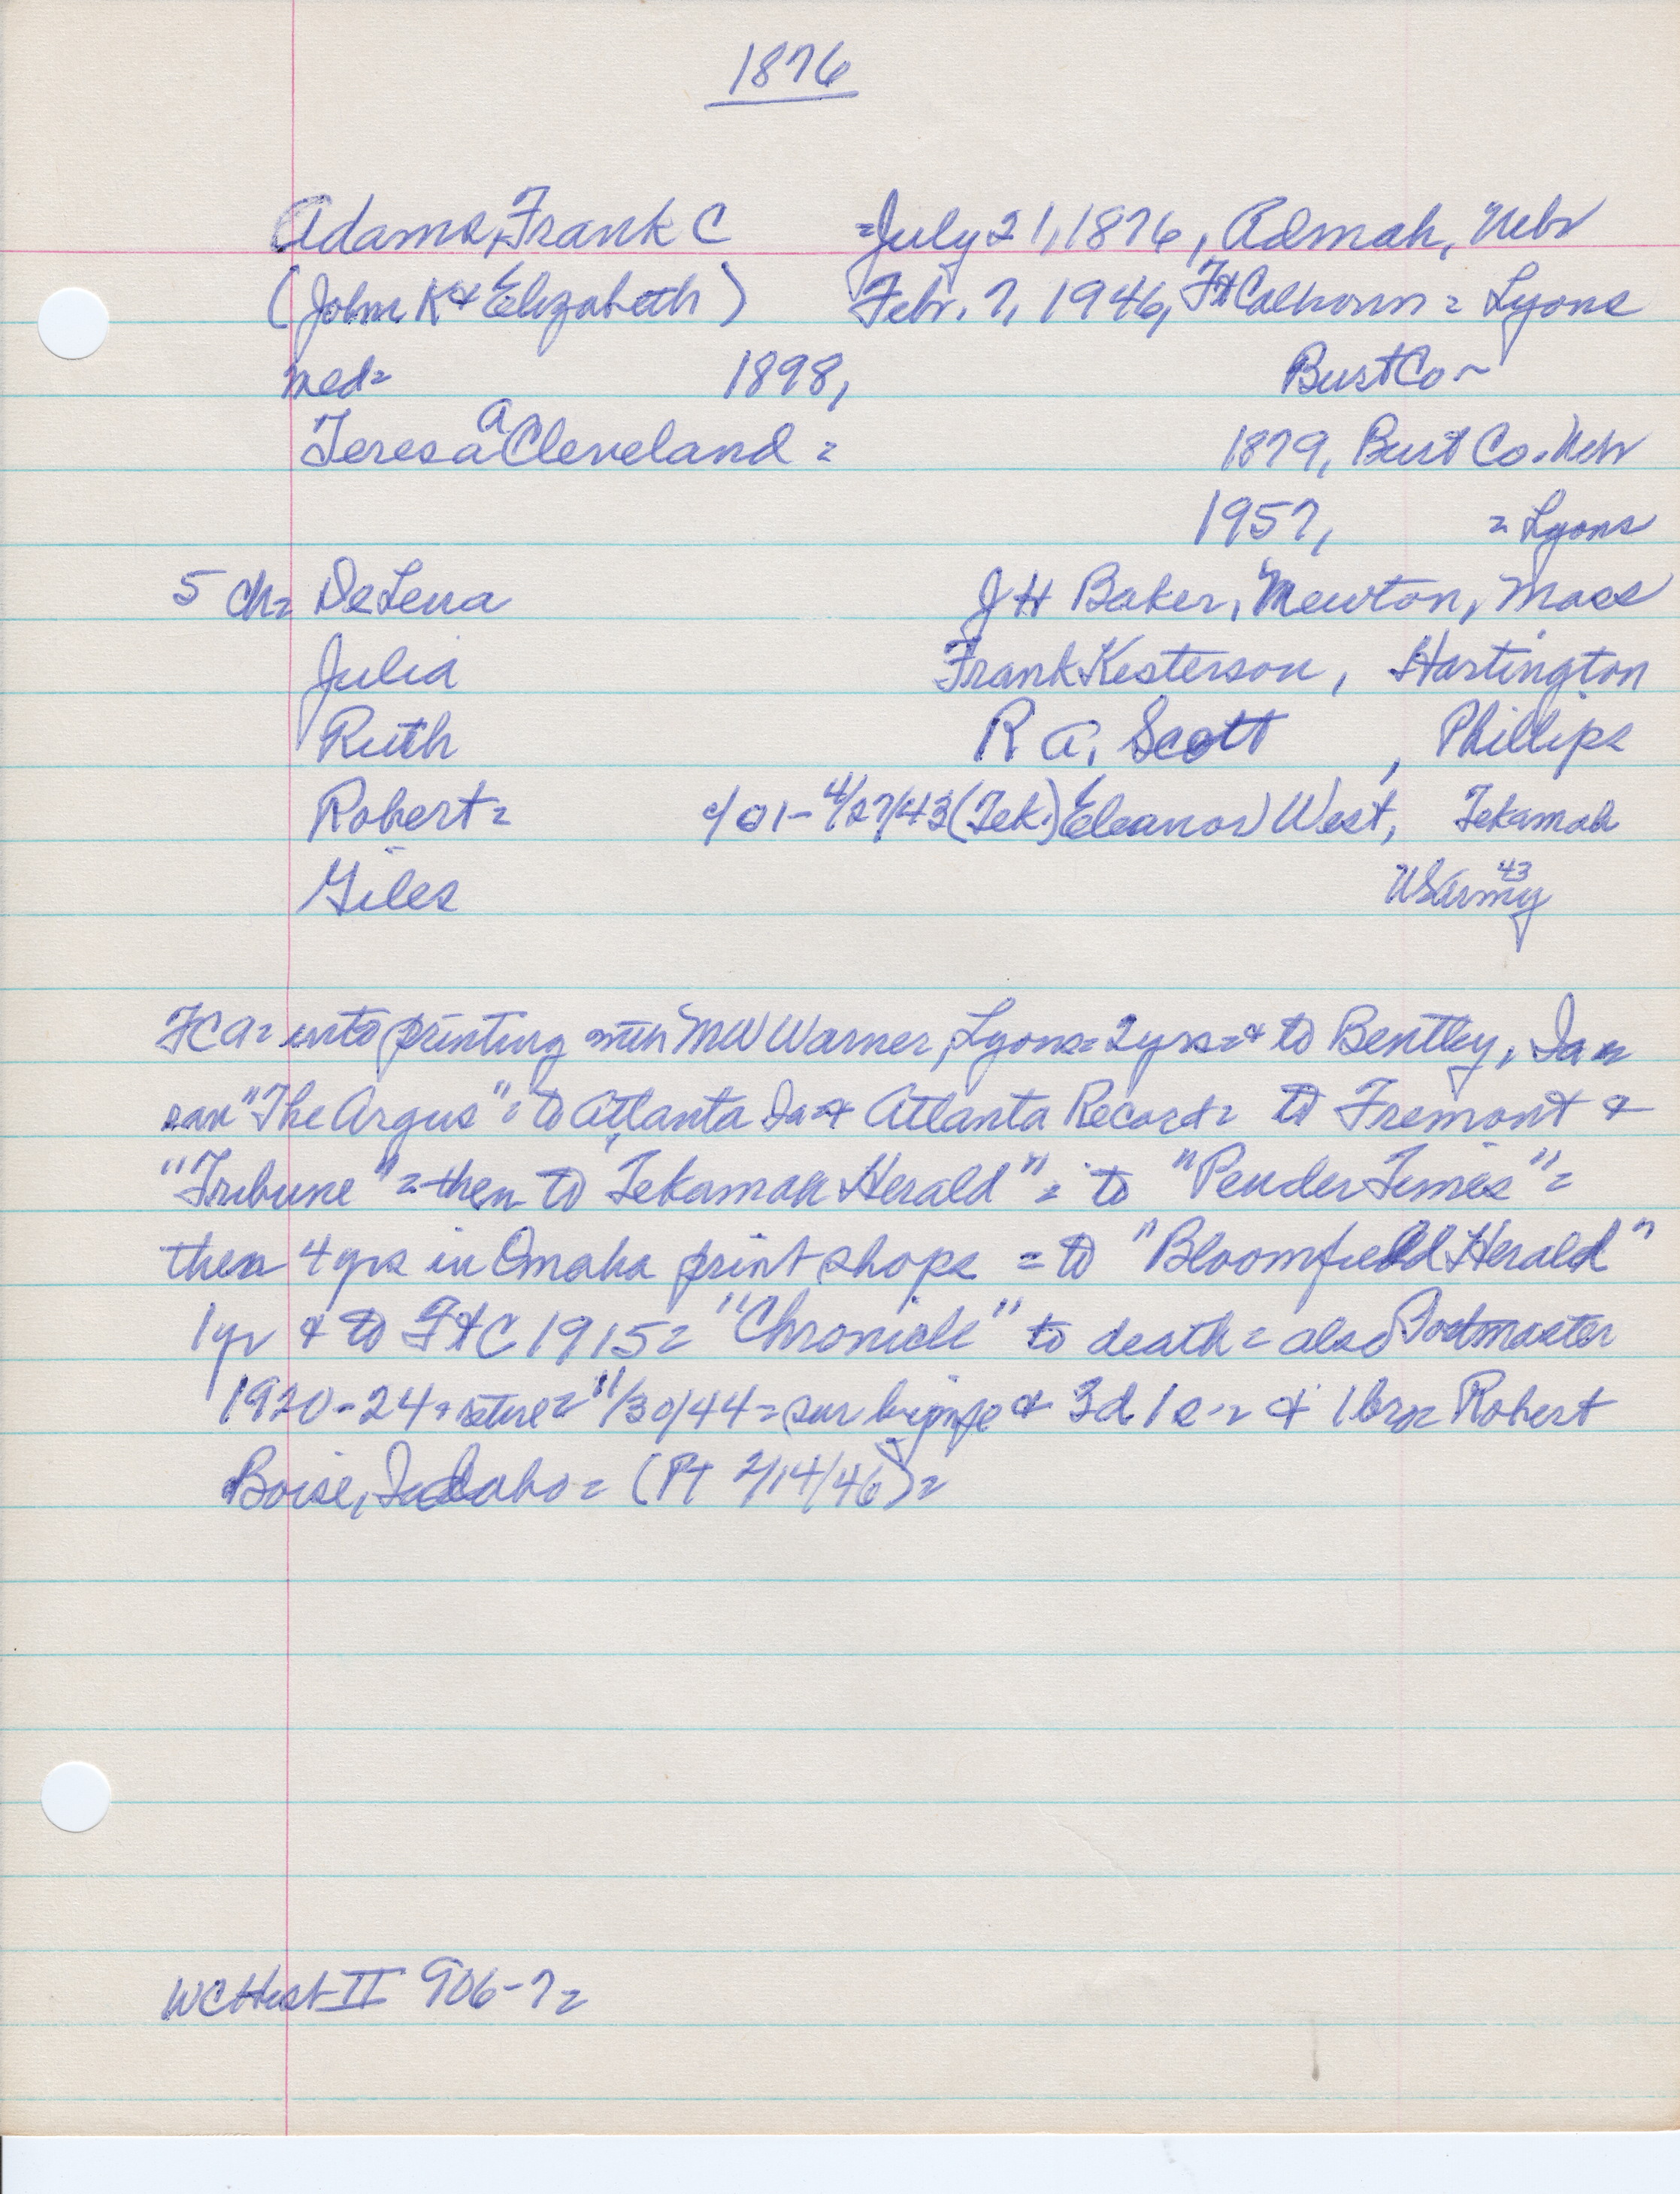 1876
Adams, Frank C =July 21, 1876, Admah, Nebr
(John K & Elizabeth) Febr. 7, 1946, Ft Calhoun = Lyons
med= 1898, Burt Co~
Teresa A Cleveland = 1879, Burt Co. Nebr
1957, = Lyons
5 ch= DeLena J H Baker, Newton, Mass
Julia Frank Kesterson, Hartington
Ruth R A. Scott, Phillips
Robert= 4/27/43 (Tek.) Eleanor West, Tekamah
Giles US Army 43
FCA= into printing with MW Warner, Lyons= 2yrs=& to Bentley, Ia &
ran "The Argus"= to Atlanta Ia & Atlanta Record= to Fremont &
"Tribune"= then to Tekamah Herald"= to "Pender Times"=
then 4 yrs in Omaha print shops = to "Bloomfield Herald"
1yr & to Ft C 1915= "Chronicle" to death= also Postmaster
1920-24 + retire= 11/30/44= sur by & 3d 1s & 1 bro= Robert
Boise, Idaho= (Pt 2/14/46)=
WC Hist II 906-7=